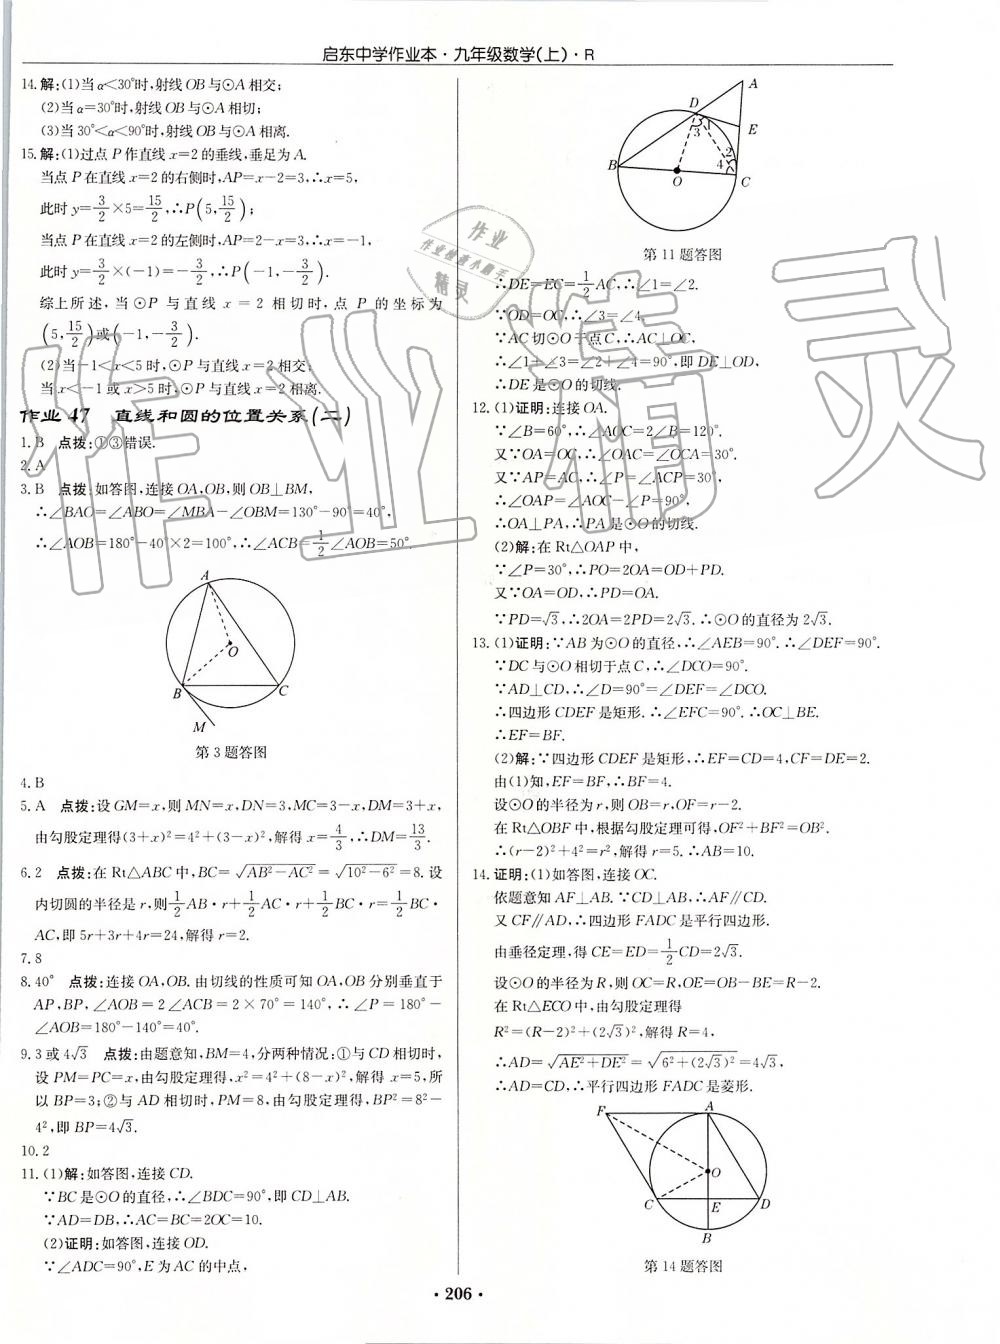 启东中学作业本·九年级数学(上)·R
14.解:(1)当α<30°时,射线OB与⊙A相交;
(2)当α=30°时,射线OB与⊙A相切;
(3)当30°<α<90°时,射线OB与⊙A相离.
15.解:(1)过点P作直线x=2的垂线,垂足为A.
当点P在直线x=2的右侧时,AP=x-2=3,∴x=5,
此时y=3/2×5=15/2,∴P(5,15/2);
当点P在直线x=2的左侧时,AP=2-x=3,∴x=-1,
此时y=3/2×(-1)=-3/2,∴P(-1,-3/2).
综上所述,当⊙P与直线x=2相切时,点P的坐标为
(5,15/2)或(-1,-3/2).
(2)当-1<x<5时,⊙P与直线x=2相交;
当x<-1或x>5时,⊙P与直线x=2相离.
作业47 直线和圆的位置关系(二)
1.B 点拨:①③错误.
2.A
3.B 点拨:如答图,连接OA,OB,则OB⊥BM,
∴∠BAO=∠ABO=∠MBA-∠OBM=130°-90°=40°,
∴∠AOB=180°-40°×2=100°,∴∠ACB=1/2∠AOB=50°.
A
O
B
C
M
第3题答图
4.B
5.A 点拨:设GM=x,则MN=x,DN=3,MC=3-x,DM=3+x,
由勾股定理得(3+x)²=4²+(3-x)²,解得x=4/3,∴DM=13/3.
6.2 点拨:在Rt△ABC中,BC=√(AB²-AC²)=√(10²-6²)=8.设
内切圆的半径是r,则1/2AB·r+1/2AC·r+1/2BC·r=1/2BC·
AC,即5r+3r+4r=24,解得r=2.
7.8
8.40° 点拨:连接OA,OB.由切线的性质可知OA,OB分别垂直于
AP,BP,∠AOB=2∠ACB=2×70°=140°,∴∠P=180°-
∠AOB=180°-140°=40°.
9.3或4√3 点拨:由题意知,BM=4,分两种情况:①与CD相切时,
设PM=PC=x,由勾股定理得,x²=4²+(8-x)²,解得x=5,所
以BP=3;②与AD相切时,PM=8,由勾股定理得,BP²=8²-
4²,即BP=4√3.
10.2
11.(1)解:如答图,连接CD.
∵BC是⊙O的直径,∴∠BDC=90°,即CD⊥AB.
∵AD=DB,∴AC=BC=2OC=10.
(2)证明:如答图,连接OD.
∵∠ADC=90°,E为AC的中点,
A
D
E
3
1
2
4
B
O
C
第11题答图
∴DE=EC=1/2AC,∴∠1=∠2.
∵OD=OC,∴∠3=∠4.
∵AC切⊙O于点C,∴AC⊥OC,
∴∠1+∠3=∠2+∠4=90°,即DE⊥OD,
∴DE是⊙O的切线.
12.(1)证明:连接OA.
∵∠B=60°,∴∠AOC=2∠B=120°.
又∵OA=OC,∴∠OAC=∠OCA=30°.
又∵AP=AC,∴∠P=∠ACP=30°,
∴∠OAP=∠AOC-∠P=90°,
∴OA⊥PA,∴PA是⊙O的切线.
(2)解:在Rt△OAP中,
∵∠P=30°,∴PO=2OA=OD+PD.
又∵OA=OD,∴PD=OA.
∵PD=√3,∴2OA=2PD=2√3.∴⊙O的直径为2√3.
13.(1)证明:∵AB为⊙O的直径,∴∠AEB=90°,∴∠DEF=90°.
∵DC与⊙O相切于点C,∴∠DCO=90°.
∵AD⊥CD,∴∠D=90°=∠DEF=∠DCO.
∴四边形CDEF是矩形.∴∠EFC=90°.∴OC⊥BE.
∴EF=BF.
(2)解:∵四边形CDEF是矩形,∴EF=CD=4,CF=DE=2.
由(1)知,EF=BF,∴BF=4.
设⊙O的半径为r,则OB=r,OF=r-2.
在Rt△OBF中,根据勾股定理可得,OF²+BF²=OB².
∴(r-2)²+4²=r²,解得r=5.∴AB=10.
14.证明:(1)如答图,连接OC.
依题意知AF⊥AB.∵CD⊥AB,∴AF∥CD.
又CF∥AD,∴四边形FADC是平行四边形.
由垂径定理,得CE=ED=1/2CD=2√3.
设⊙O的半径为R,则OC=R,OE=OB-BE=R-2.
在Rt△ECO中,由勾股定理得
R²=(R-2)²+(2√3)²,解得R=4,
∴AD=√(AE²+DE²)=√(6²+(2√3)²)=4√3,
∴AD=CD,∴平行四边形FADC是菱形.
F
A
O
C
E
D
B
第14题答图
·206·
作业精灵
作业
作业检查小助手
精灵